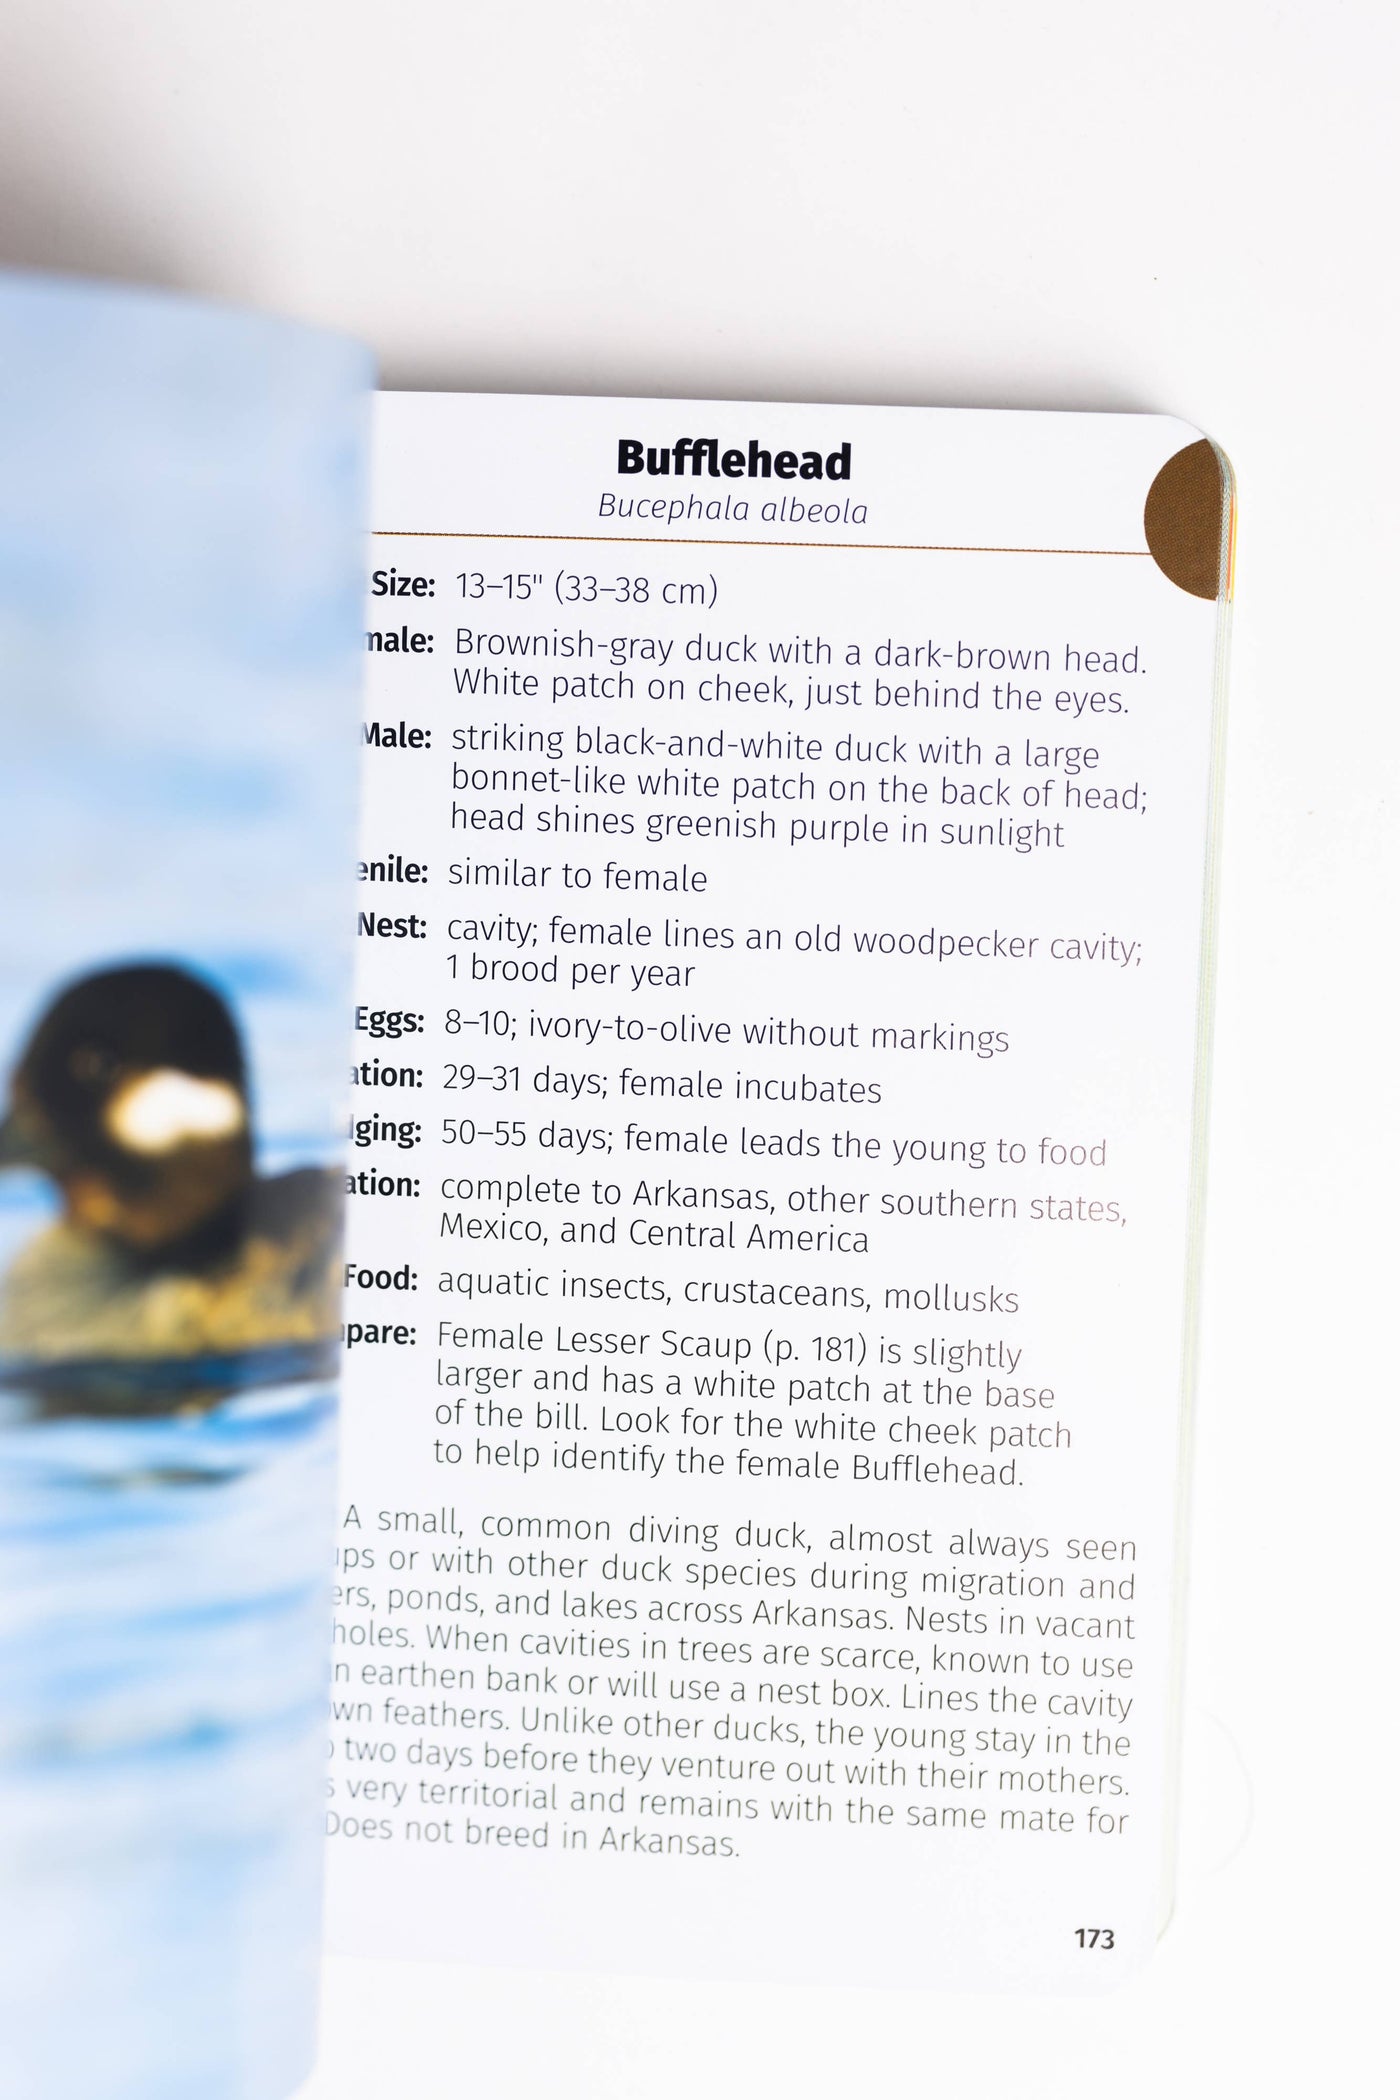 Bufflehead
Bucephala albeola
Size: 13–15" (33–38 cm)
male: Brownish-gray duck with a dark-brown head.
White patch on cheek, just behind the eyes.
Male: striking black-and-white duck with a large
bonnet-like white patch on the back of head;
head shines greenish purple in sunlight
enile: similar to female
Nest: cavity; female lines an old woodpecker cavity;
1 brood per year
Eggs: 8–10; ivory-to-olive without markings
ation: 29–31 days; female incubates
ging: 50–55 days; female leads the young to food
ation: complete to Arkansas, other southern states,
Mexico, and Central America
Food: aquatic insects, crustaceans, mollusks
pare: Female Lesser Scaup (p. 181) is slightly
larger and has a white patch at the base
of the bill. Look for the white cheek patch
to help identify the female Bufflehead.
A small, common diving duck, almost always seen
ups or with other duck species during migration and
ers, ponds, and lakes across Arkansas. Nests in vacant
holes. When cavities in trees are scarce, known to use
n earthen bank or will use a nest box. Lines the cavity
wn feathers. Unlike other ducks, the young stay in the
two days before they venture out with their mothers.
s very territorial and remains with the same mate for
Does not breed in Arkansas.
173